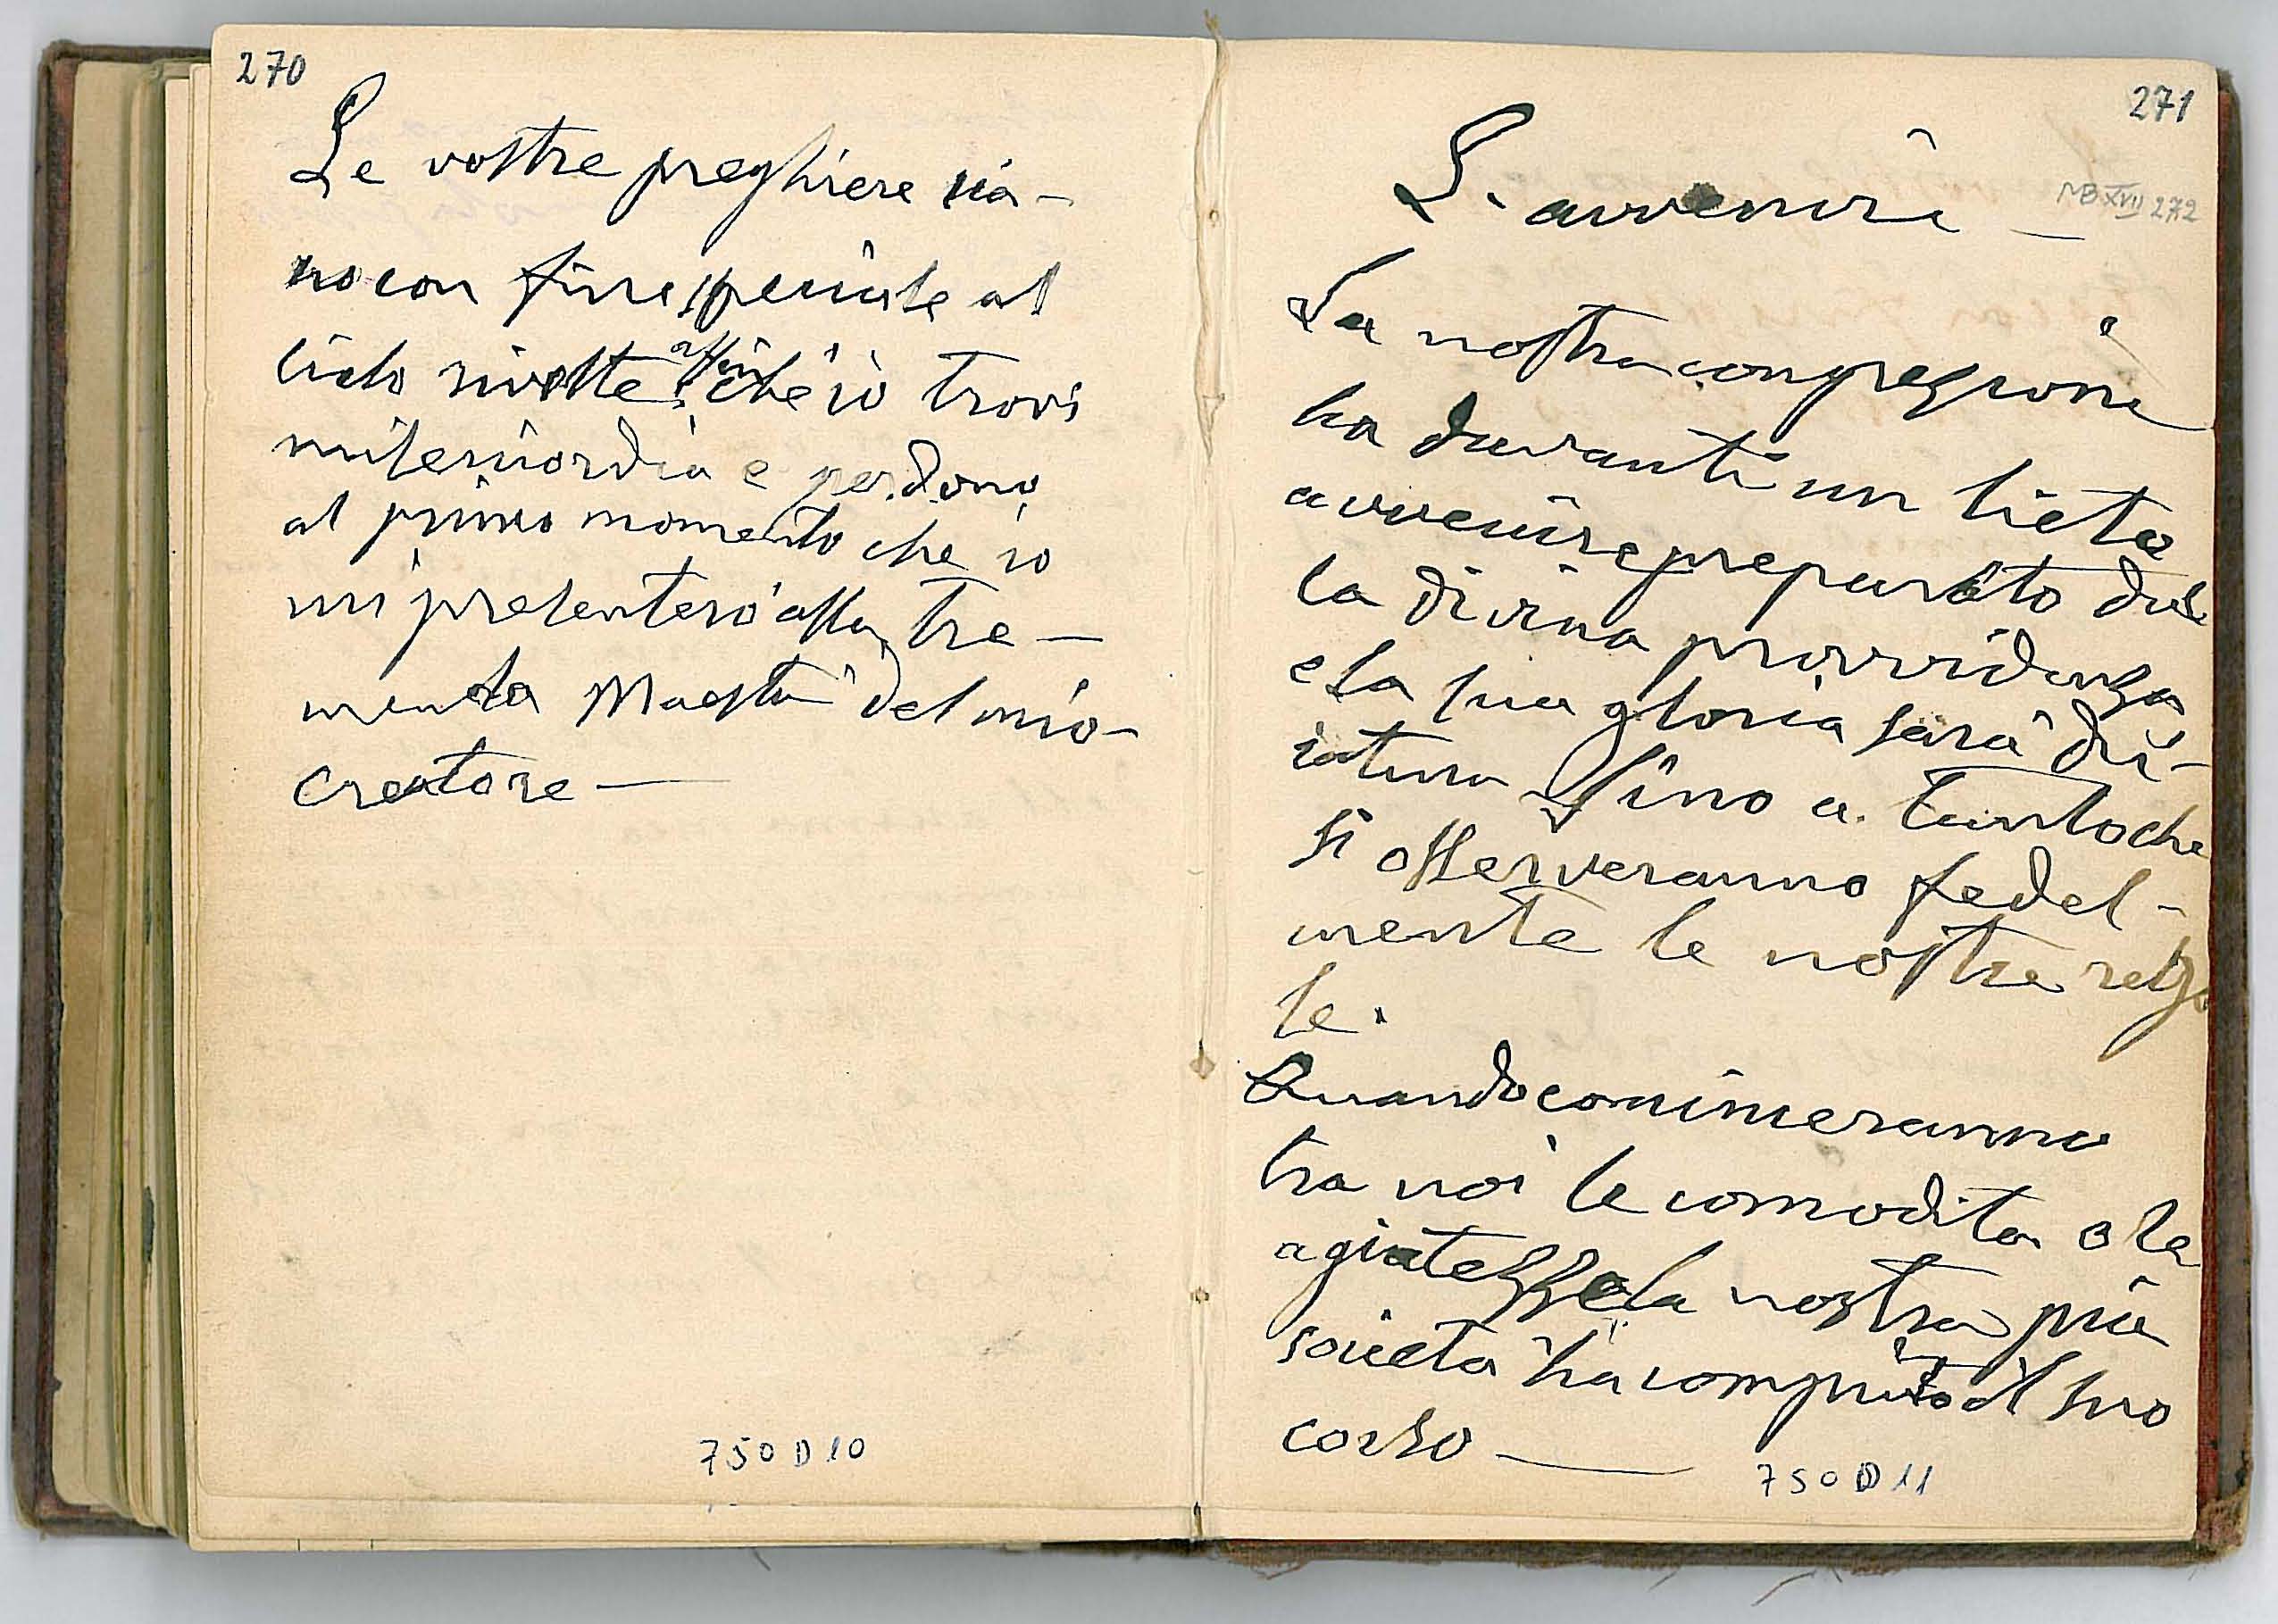 270
Le vostre preghiere sia-
no con fine speciale al
Cielo rivolte affin chè io trovi
misericordia e perdono
al primo momento che io
mi presenterò alla tre-
menda Maestà del mio
Creatore
750 D 10
271
L'avvenire
MB XVII 272
La nostra congregzione
ha davanti un lieto
avvenire preparato dal
la divina provvidenza
e la sua gloria sarà du-
ratura fino a tanto che
si osserveranno fedel-
mente le nostre rego
le.
Quando cominceranno
tra noi le comodità o le
agiatezze la nostra pia
società ha compiuto il suo
corso
750 D 11